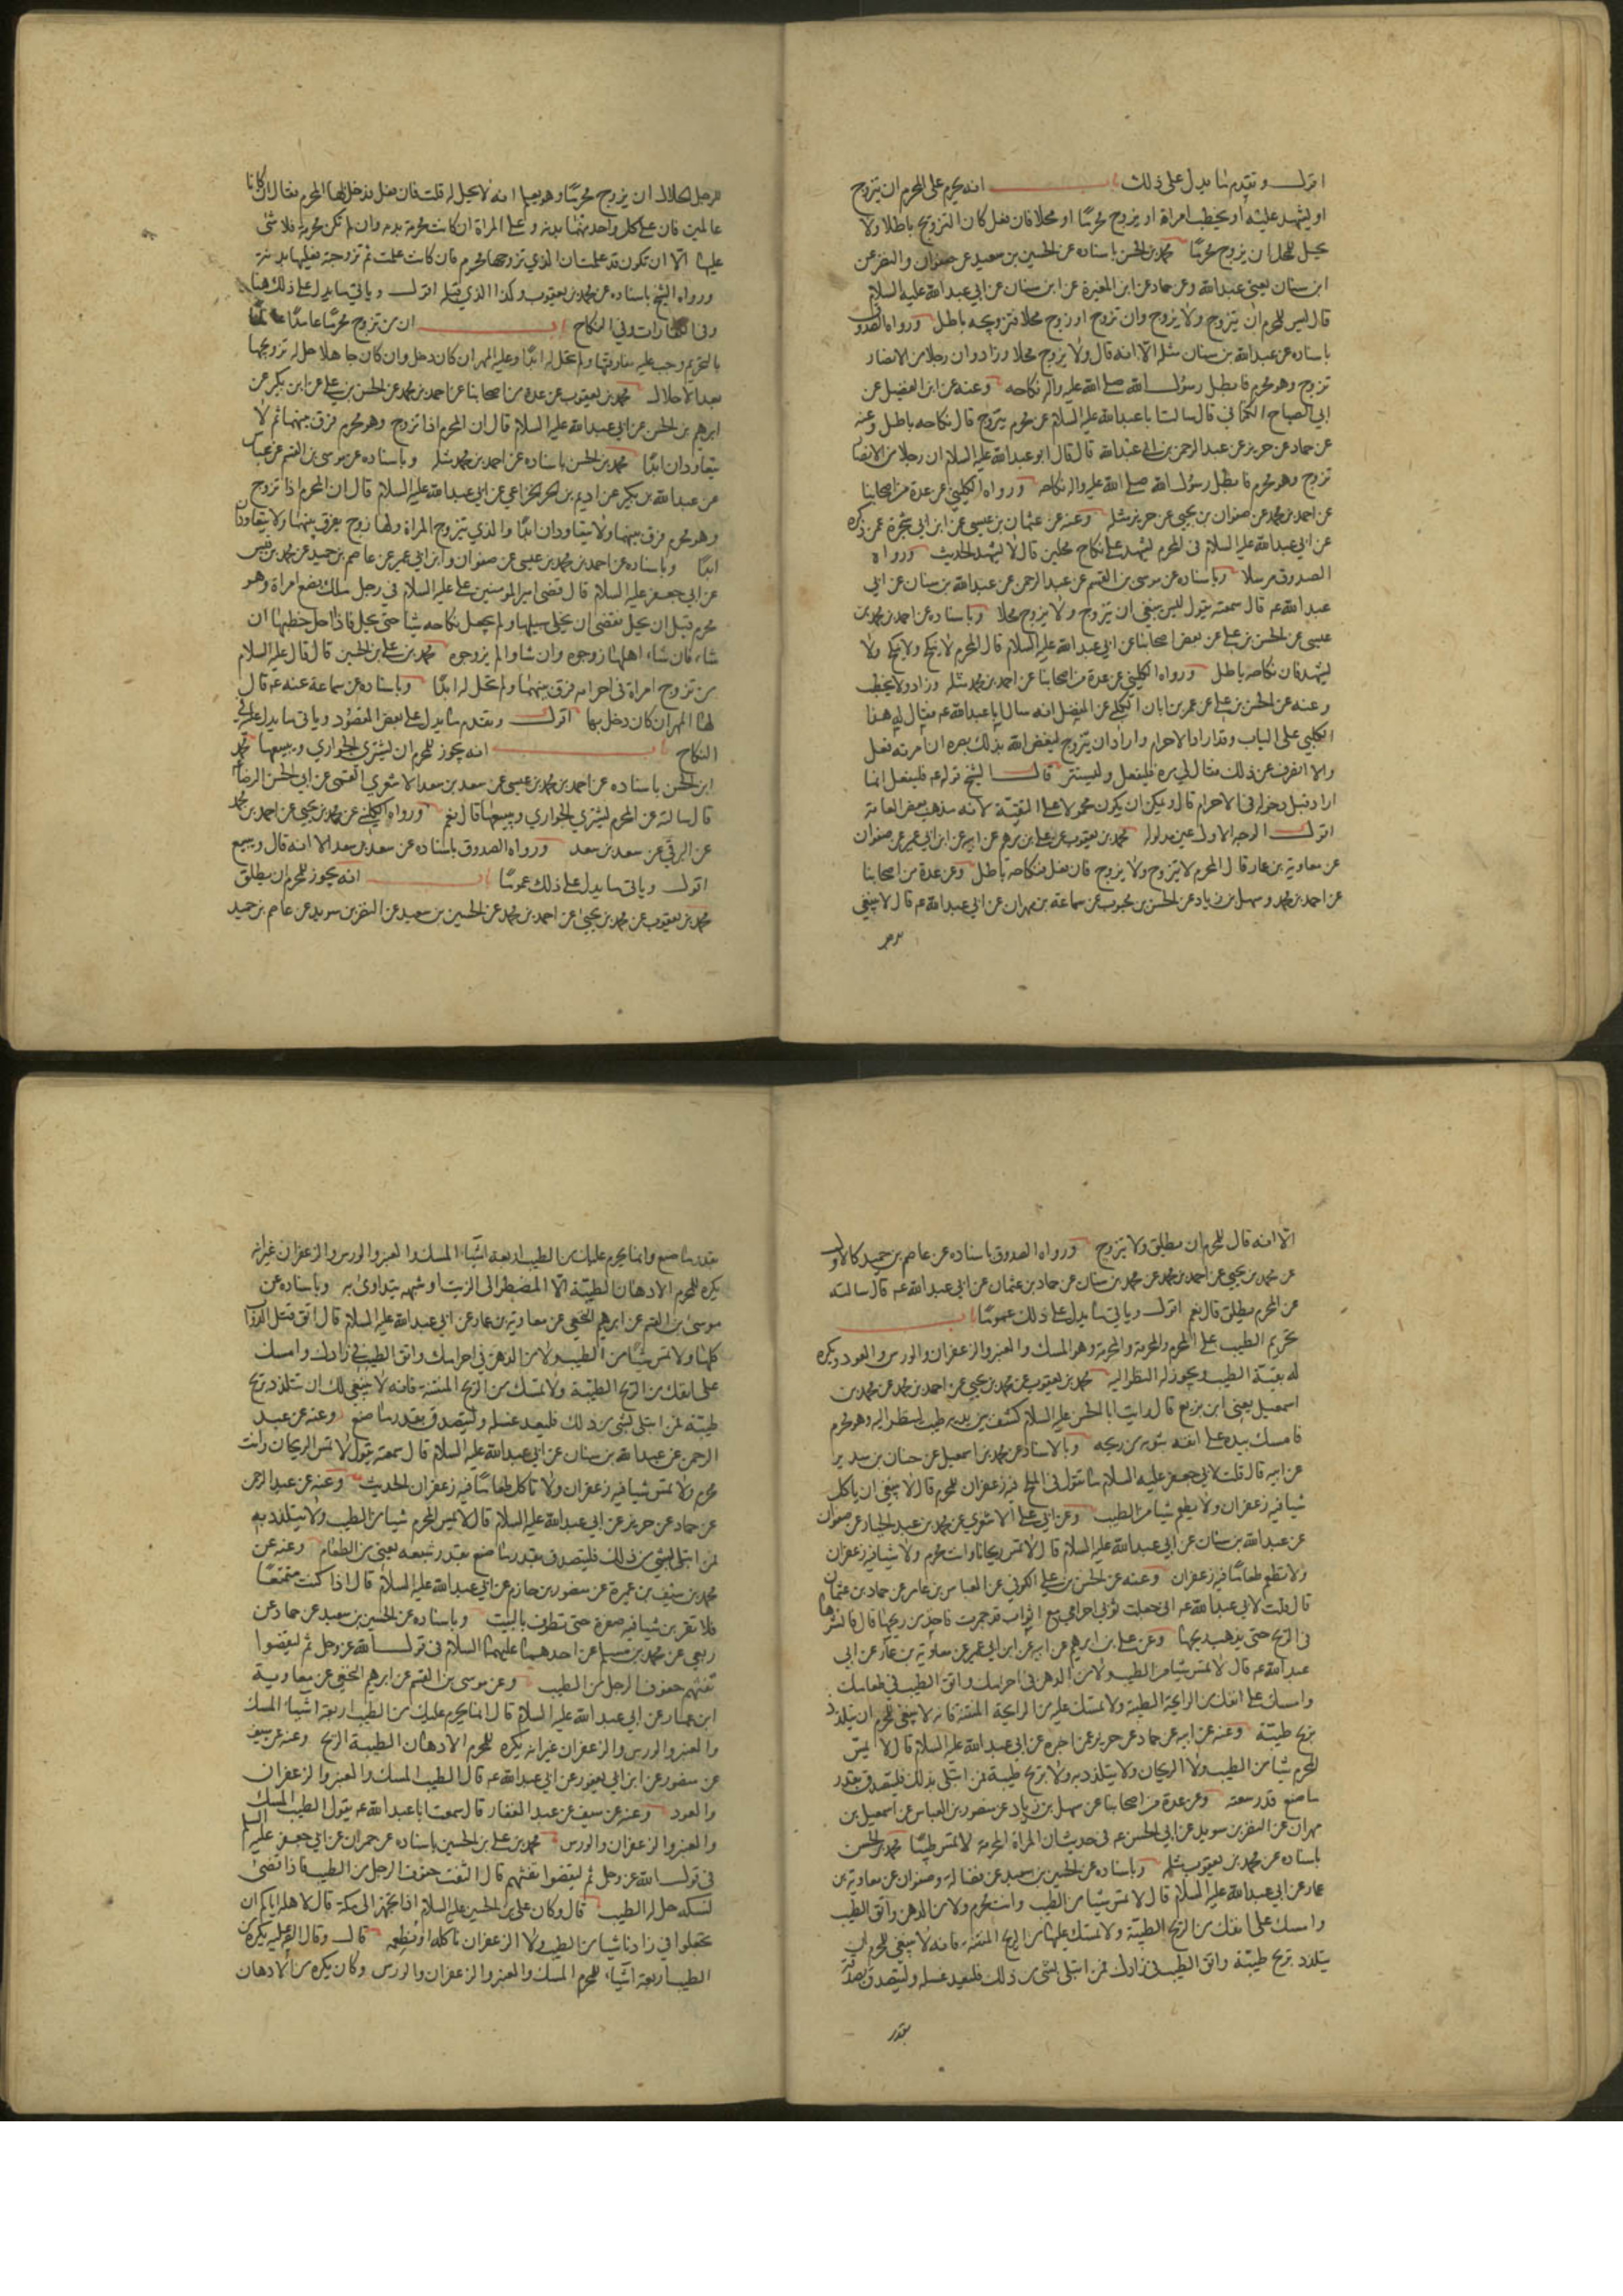 اقول وتقدم ما يدل على ذلك باب انه يحرم على المحرم ان يتزوج
او يشهد عليه او يخطب امراة او يزوج محرما او محلا فان فعل كان التزويج باطلا ولا
يحل للمحل ان يزوج محرما محمد بن الحسن باسناده عن الحسين بن سعيد عن صفوان والنضر عن
ابن سنان يعني عبد الله وعن حماد عن ابن المغيرة عن ابن سنان عن ابي عبد الله عليه السلام
قال ليس للمحرم ان يتزوج ولا يزوج وان تزوج او زوج محلا فتزويجه باطل ورواه الصدوق
باسناده عن عبد الله بن سنان مثله الا انه قال ولا يزوج محلا وزاد وان رجلا من الانصار
تزوج وهو محرم فابطل رسول الله صلى الله عليه واله نكاحه وعنه عن ابن الفضيل عن
ابي الصباح الكناني قال سالت ابا عبد الله عليه السلام عن محرم يتزوج قال نكاحه باطل وعنه
عن حماد عن حريز عن عبد الرحمن بن ابي عبد الله قال قال ابو عبد الله عليه السلام ان رجلا من الانصار
تزوج وهو محرم فابطل رسول الله صلى الله عليه واله نكاحه ورواه الكليني عن عدة من اصحابنا
عن احمد بن محمد عن صفوان بن يحيى عن حريز مثله وعنه عن عثمان بن عيسى عن ابن ابي شجرة عمن ذكره
عن ابي عبد الله عليه السلام في المحرم يشهد على نكاح محلين قال لا يشهد الحديث ورواه
الصدوق مرسلا وباسناده عن موسى بن القسم عن عبد الرحمن عن عبد الله بن سنان عن ابي
عبد الله عم قال سمعته يقول ليس ينبغي ان يتزوج ولا يزوج محلا وباسناده عن احمد بن محمد بن
عيسى عن الحسن بن علي عن بعض اصحابنا عن ابي عبد الله عليه السلام قال المحرم لا ينكح ولا ينكح ولا
يشهد فان نكاحه باطل ورواه الكليني عن عدة من اصحابنا عن احمد بن محمد مثله وزاد ولا يخطب
وعنه عن الحسن بن علي عن عمر بن ابان الكلبي عن المفضل انه سال ابا عبد الله عم فقال له هذا
الكلبي على الباب وقد اراد الاحرام واراد ان يتزوج ليغض الله بذلك بصره ان امرته فعل
والا انصرف عن ذلك فقال لي مره فليفعل وليستتر قال الشيخ قوله عم فليفعل انما
اراد قبل دخوله في الاحرام قال ويمكن ان يكون محمولا على التقية لانه مذهب بعض العامة
اقول الوجه الاول عين مدلوله محمد بن يعقوب عن علي بن ابرهيم عن ابيه عن ابن ابي عمير عن صفوان
عن معاوية بن عمار قال المحرم لا يتزوج ولا يزوج فان فعل فنكاحه باطل وعن عدة من اصحابنا
عن احمد بن محمد وسهل بن زياد عن الحسن بن محبوب عن سماعة بن مهران عن ابي عبد الله عم قال لا ينبغي
للرجل الحلال ان يزوج محرما وهو يعلم انه لا يحل له قلت فان فعل فدخل بها المحرم فقال ان كانا
عالمين فان على كل واحد منهما بدنة وعلى المراة ان كانت محرمة بدنة وان لم تكن محرمة فلا شئ
عليها الا ان تكون قد علمت ان الذي تزوجها محرم فان كانت علمت ثم تزوجته فعليها بدنة
ورواه الشيخ باسناده عن محمد بن يعقوب وكذا الذي قبله اقول وياتي ما يدل على ذلك هنا
وفي الكفارات وفي النكاح باب ان من تزوج محرما عامدا عالما
بالتحريم وجب عليه مفارقتها ولم تحل له ابدا وعليه المهر ان كان دخل وان كان جاهلا حل له تزويجها
بعد الاحلال محمد بن يعقوب عن عدة من اصحابنا عن احمد بن محمد عن الحسن بن علي عن ابن بكير عن
ابرهيم بن الحسن عن ابي عبد الله عليه السلام قال ان المحرم اذا تزوج وهو محرم فرق بينهما ثم لا
يتعاودان ابدا محمد بن الحسن باسناده عن احمد بن محمد مثله وباسناده عن موسى بن القسم عن عباس
عن عبد الله بن بكير عن اديم بن الحر الخزاعي عن ابي عبد الله عليه السلام قال ان المحرم اذا تزوج
وهو محرم فرق بينهما ولا يتعاودان ابدا والذي يتزوج المراة ولها زوج يفرق بينهما ولا يتعاودان
ابدا وباسناده عن احمد بن محمد بن عيسى عن صفوان وابن ابي عمير عن عاصم بن حميد عن محمد بن قيس
عن ابي جعفر عليه السلام قال قضى امير المؤمنين علي عليه السلام في رجل ملك بضع امراة وهو
محرم قبل ان يحل فقضى ان يخلي سبيلها ولم يجعل نكاحه شيا حتى يحل فاذا احل خطبها ان
شاء فان شاء اهلها زوجوه وان شاوا لم يزوجوه محمد بن علي بن الحسين قال قال عليه السلام
من تزوج امراة في احرامه فرق بينهما ولم تحل له ابدا وباسناده عن سماعة عنه عم قال
لها المهر ان كان دخل بها اقول وتقدم ما يدل على بعض المقصود وياتي ما يدل عليه في
النكاح باب انه يجوز للمحرم ان يشتري الجواري ويبيعها محمد
ابن الحسن باسناده عن احمد بن محمد بن عيسى عن سعد بن سعد الاشعري القمي عن ابي الحسن الرضا
قال سالته عن المحرم يشتري الجواري ويبيعها قال نعم ورواه الكليني عن محمد بن يحيى عن احمد بن محمد
عن البرقي عن سعد بن سعد ورواه الصدوق باسناده عن سعد بن سعد الا انه قال ويبيع
اقول وياتي ما يدل على ذلك عموما باب انه يجوز للمحرم ان يطلق
محمد بن يعقوب عن محمد بن يحيى عن احمد بن محمد عن الحسين بن سعيد عن النضر بن سويد عن عاصم بن حميد
الا انه قال للمحرم ان يطلق ولا يتزوج ورواه الصدوق باسناده عن عاصم بن حميد كالاول
عن محمد بن يحيى عن احمد بن محمد عن محمد بن سنان عن حماد بن عثمان عن ابي عبد الله عم قال سالته
عن المحرم يطلق قال نعم اقول وياتي ما يدل على ذلك عموما باب
تحريم الطيب على المحرم والمحرمة وهو المسك والعنبر والزعفران والورس والعود ويكره
له بقية الطيب ويجوز له النظر اليه محمد بن يعقوب عن محمد بن يحيى عن احمد بن محمد عن محمد بن
اسمعيل يعني ابن بزيع قال رايت ابا الحسن عليه السلام كشف بين يديه طيب لينظر اليه وهو محرم
فامسك بيده على انفه بثوبه من ريحه وبالاسناد عن محمد بن اسمعيل عن حنان بن سدير
عن ابيه قال قلت لابي جعفر عليه السلام ما تقول في الملح فيه زعفران للمحرم قال لا ينبغي ان ياكل
شيا فيه زعفران ولا يطعم شيا من الطيب وعن ابي علي الاشعري عن محمد بن عبد الجبار عن صفوان
عن عبد الله بن سنان عن ابي عبد الله عليه السلام قال لا تمس ريحانا وانت محرم ولا شيا فيه زعفران
ولا تطعم طعاما فيه زعفران وعنه عن الحسن بن علي الكوفي عن العباس بن عامر عن حماد بن عثمان
قال قلت لابي عبد الله عم اني جعلت ثوبي احرامي مع اثواب قد جمرت فاجد من ريحها قال فانشرها
في الريح حتى يذهب ريحها وعن علي بن ابرهيم عن ابيه عن ابن ابي عمير عن معاوية بن عمار عن ابي
عبد الله عم قال لا تمس شيا من الطيب ولا من الدهن في احرامك واتق الطيب في طعامك
وامسك على انفك من الرايحة الطيبة ولا تمسك عليه من الرايحة المنتنة فانه لا ينبغي للمحرم ان يتلذذ
بريح طيبة وعنه عن ابيه عن حماد عن حريز عمن اخبره عن ابي عبد الله عليه السلام قال لا يمس
المحرم شيا من الطيب ولا الريحان ولا يتلذذ به ولا بريح طيبة فمن ابتلى بذلك فليتصدق بقدر
ما صنع قدر سعته وعن عدة من اصحابنا عن سهل بن زياد عن منصور بن العباس عن اسمعيل بن
مهران عن النضر بن سويد عن ابي الحسن عم في حديث ان المراة المحرمة لا تمس طيبا محمد بن الحسن
باسناده عن محمد بن يعقوب مثله وباسناده عن الحسين بن سعيد عن فضالة وصفوان عن معاوية بن
عمار عن ابي عبد الله عليه السلام قال لا تمس شيا من الطيب وانت محرم ولا من الدهن واتق الطيب
وامسك على انفك من الريح الطيبة ولا تمسك عليها من الريح المنتنة فانه لا ينبغي للمحرم ان
يتلذذ بريح طيبة واتق الطيب في زادك فمن ابتلى بشئ من ذلك فليعد غسله وليتصدق بصدقة
بقدر
بقدر ما صنع وانما يحرم عليك من الطيب اربعة اشياء المسك والعنبر والورس والزعفران غير انه
يكره للمحرم الادهان الطيبة الا المضطر الى الزيت او شبهه يتداوى به وباسناده عن
موسى بن القسم عن ابرهيم النخعي عن معاوية بن عمار عن ابي عبد الله عليه السلام قال اتق قتل الدواب
كلها ولا تمس شيا من الطيب ولا من الدهن في احرامك واتق الطيب في زادك وامسك
على انفك من الريح الطيبة ولا تمسك من الريح المنتنة فانه لا ينبغي لك ان تتلذذ بريح
طيبة فمن ابتلى بشئ من ذلك فليعد غسله وليتصدق بقدر ما صنع وعنه عن عبد
الرحمن عن عبد الله بن سنان عن ابي عبد الله عليه السلام قال سمعته يقول لا تمس الريحان وانت
محرم ولا تمس شيا فيه زعفران ولا تاكل طعاما فيه زعفران الحديث وعنه عن عبد الرحمن
عن حماد عن حريز عن ابي عبد الله عليه السلام قال لا يمس المحرم شيا من الطيب ولا يتلذذ به
فمن ابتلى بشئ من ذلك فليتصدق بقدر ما صنع بقدر شبعه يعني من الطعام وعنه عن
محمد بن سيف بن عميرة عن منصور بن حازم عن ابي عبد الله عليه السلام قال اذا كنت متمتعا
فلا تقربن شيا فيه صفرة حتى تطوف بالبيت وباسناده عن الحسين بن سعيد عن حماد عن
ربعي عن محمد بن مسلم عن احدهما عليهما السلام في قول الله عز وجل ثم ليقضوا
تفثهم حفوف الرجل من الطيب وعن موسى بن القسم عن ابرهيم النخعي عن معاوية
ابن عمار عن ابي عبد الله عليه السلام قال انما يحرم عليك من الطيب اربعة اشياء المسك
والعنبر والورس والزعفران غير انه يكره للمحرم الادهان الطيبة الريح وعنه عن سيف
عن منصور عن ابن ابي يعفور عن ابي عبد الله عم قال الطيب المسك والعنبر والزعفران
والعود وعنه عن سيف عن عبد الغفار قال سمعت ابا عبد الله عم يقول الطيب المسك
والعنبر والزعفران والورس محمد بن علي بن الحسين باسناده عن حمران عن ابي جعفر عليه السلام
في قول الله عز وجل ثم ليقضوا تفثهم قال التفث حفوف الرجل من الطيب فاذا قضى
نسكه حل له الطيب قال وكان علي بن الحسين عليه السلام اذا تجهز الى مكة قال لاهله اياكم ان
تجعلوا في زادنا شيا من الطيب ولا الزعفران ناكله او نطعمه قال وقال الصادق عليه يكره من
الطيب اربعة اشياء للمحرم المسك والعنبر والزعفران والورس وكان يكره من الادهان